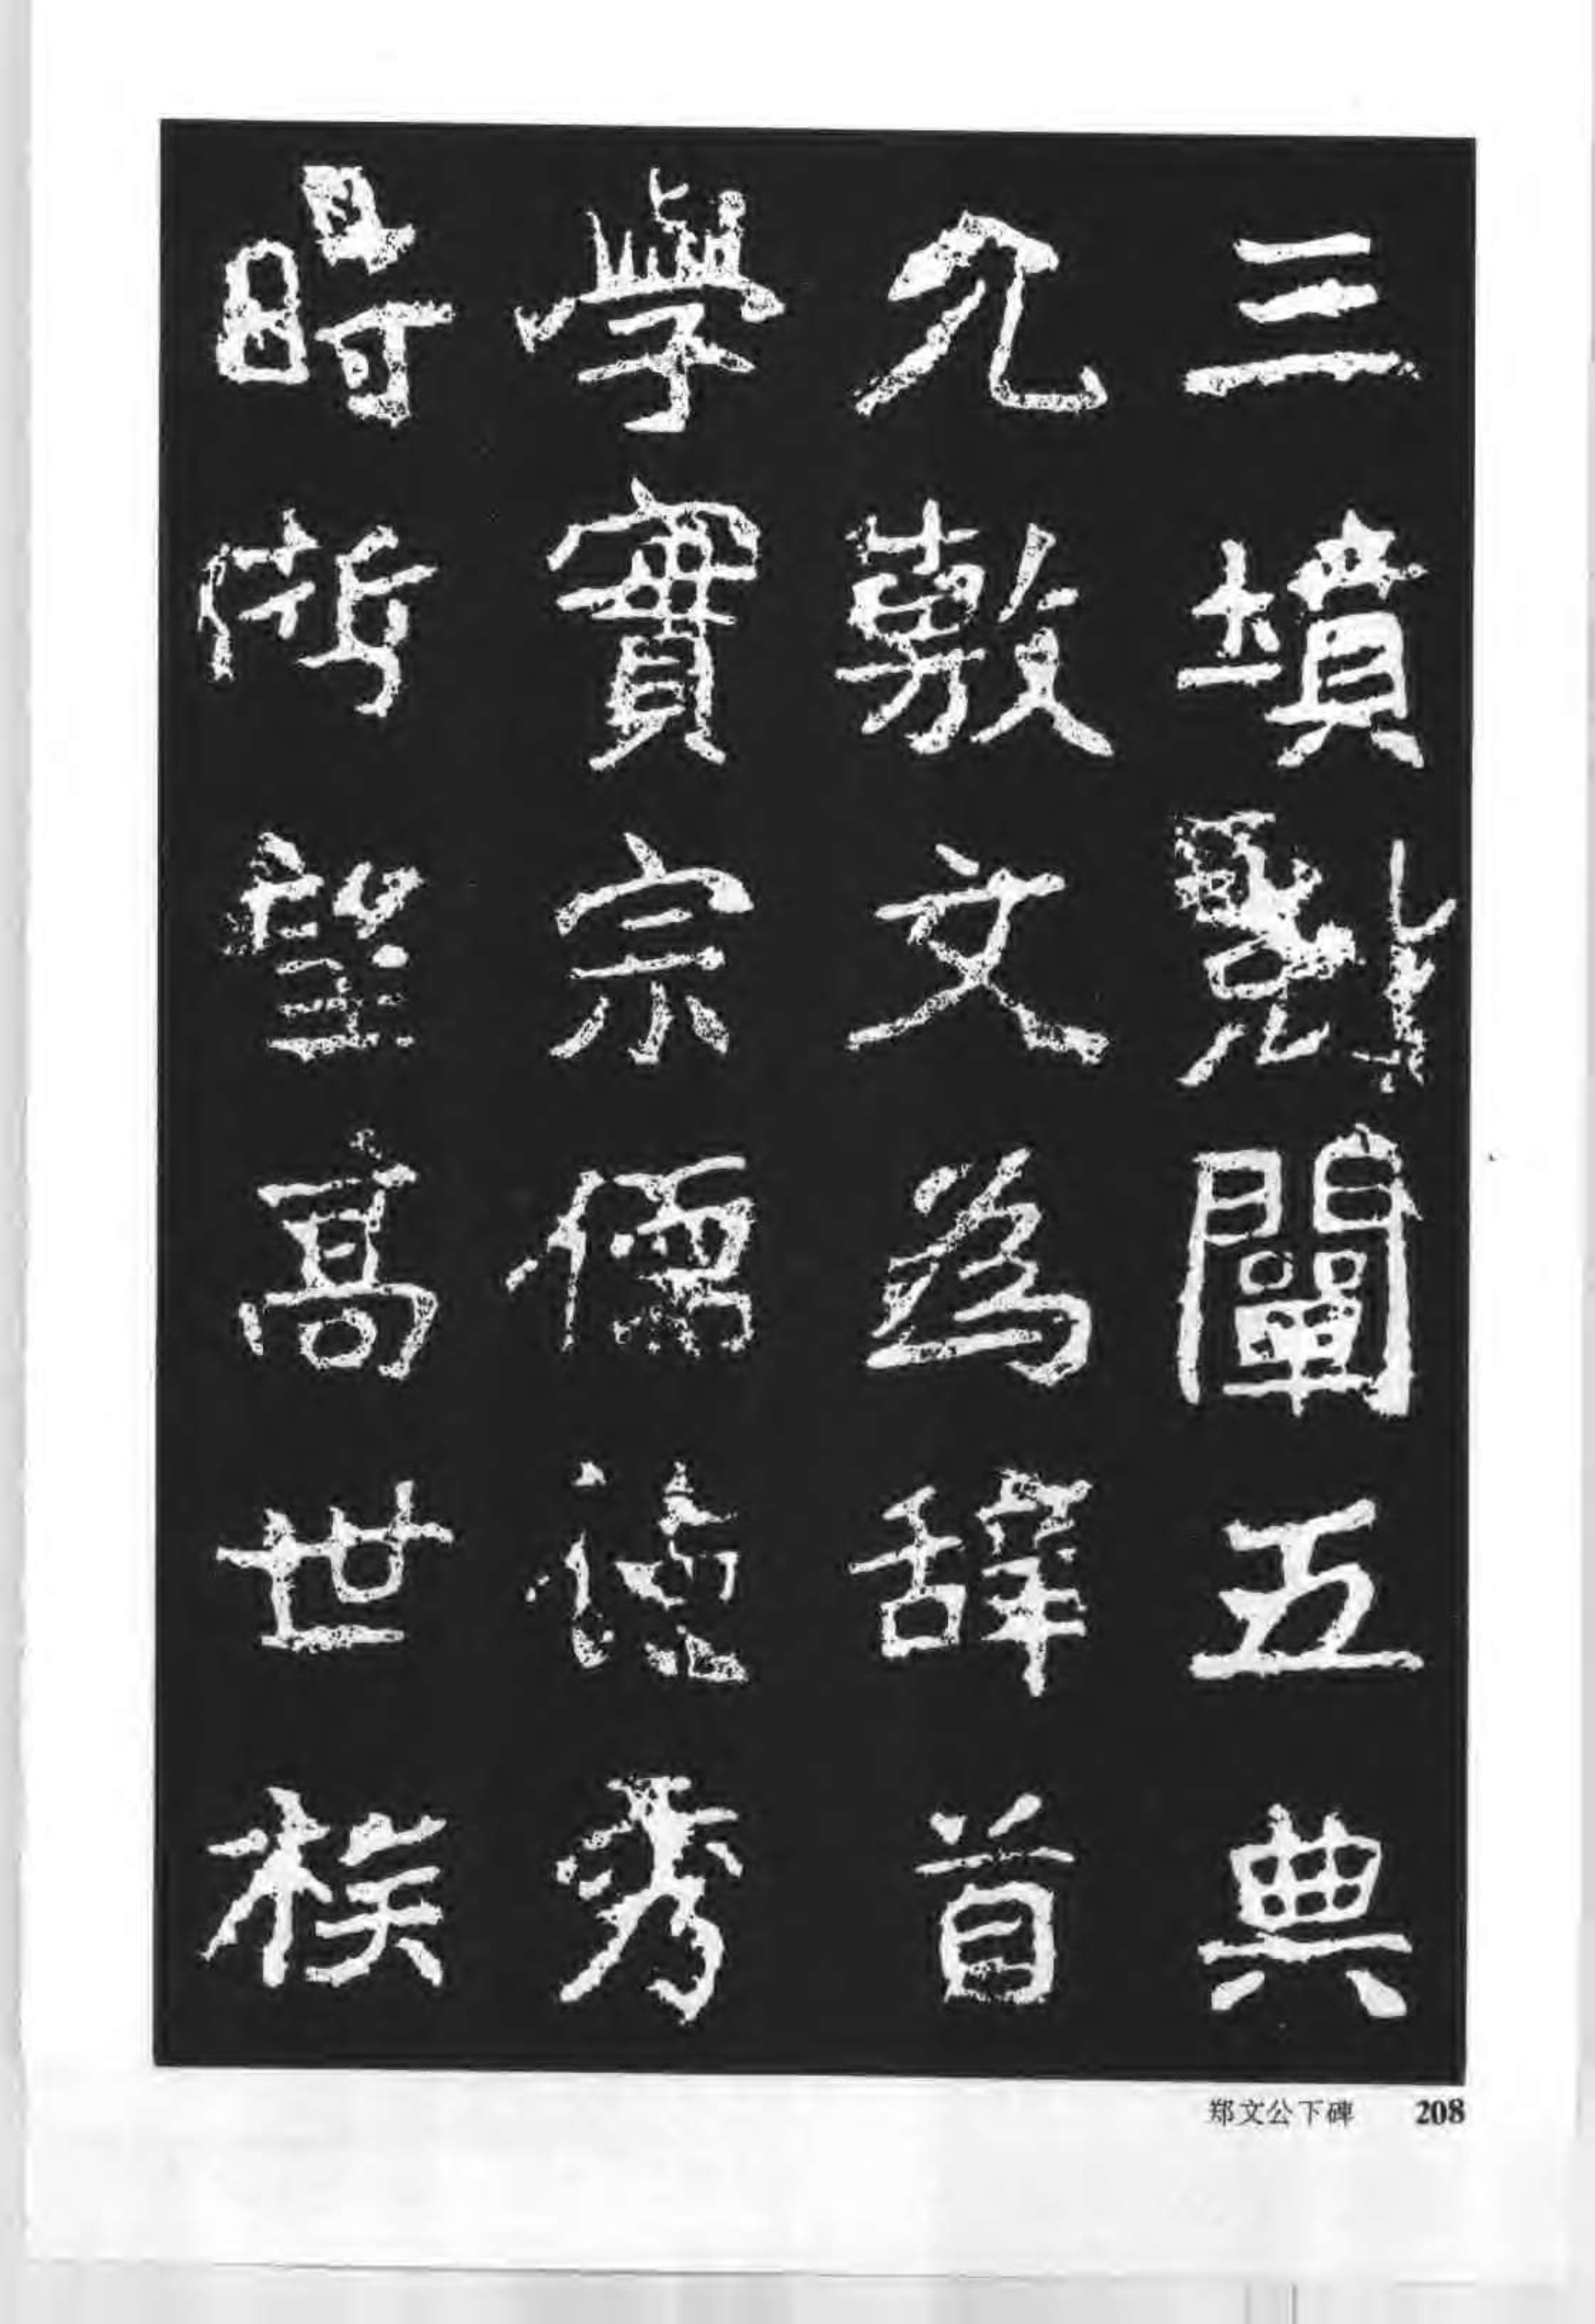 三墳剋闡五典
允敷文為辭首
學實宗儒德秀
時哲望高世族
郑文公下碑 208